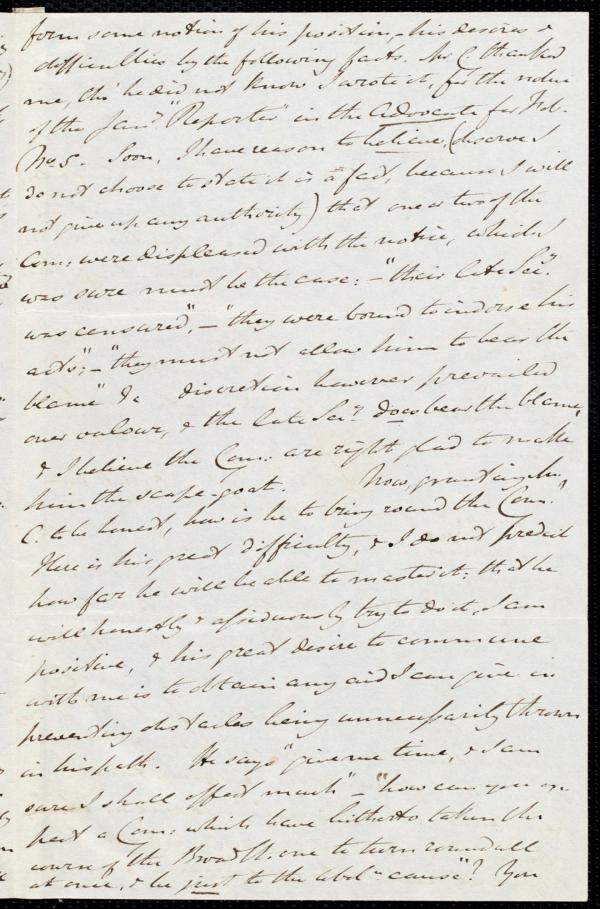 form some notion of his position, his desires &
difficulties by the following facts. Mr C. thanked
me, tho' he did not know I wrote it, for the notice
of the Jany. "Reporter" in the Advocate for Feb.
No 5. Soon, I have reason to believe, (observe I
do not choose to state it is a fact, because I will
not give up any authority) that one or two of the
Com: were displeased with the notice, which I
was sure must be the case: – "their late Secy.
was censured", – "they were bound to indorse his
acts"; – "they must not allow him to bear the
blame" &c discretion however prevailed
over valour, & the late Secy. does bear the blame,
& I believe the Com: are right glad to make
him the scape-goat. Now, granting Mr.
C. to be honest, how is he to bring round the Com:?
Here is his great difficulty, & I do not predict
how far he will be able to master it; that he
will honestly & assiduously try to do it, I am
positive, & his great desire to commune
with me is to obtain any aid I can give in
preventing obstacles being unnecessarily thrown
in his path. He says "give me time, & I am
sure I shall effect much" – "how can you ex-
pect a Com: which have hitherto taken the
course of the Broad St. one to turn round all
at once, & be just to the abol:n cause"? You